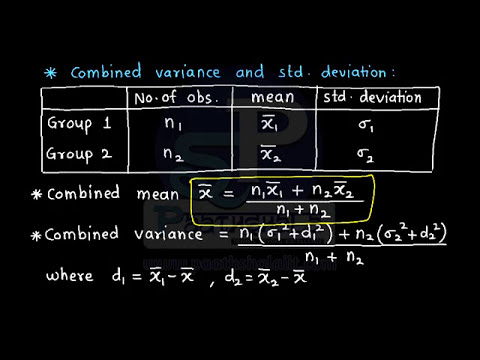 * Combined variance and std. deviation:
No. of obs. mean std. deviation
Group 1 n₁ x̅₁ σ₁
Group 2 n₂ x̅₂ σ₂
* Combined mean x̅ = (n₁x̅₁ + n₂x̅₂) / (n₁ + n₂)
* Combined variance = (n₁(σ₁²+d₁²) + n₂(σ₂²+d₂²)) / (n₁ + n₂)
where d₁ = x̅₁ - x̅ , d₂ = x̅₂ - x̅